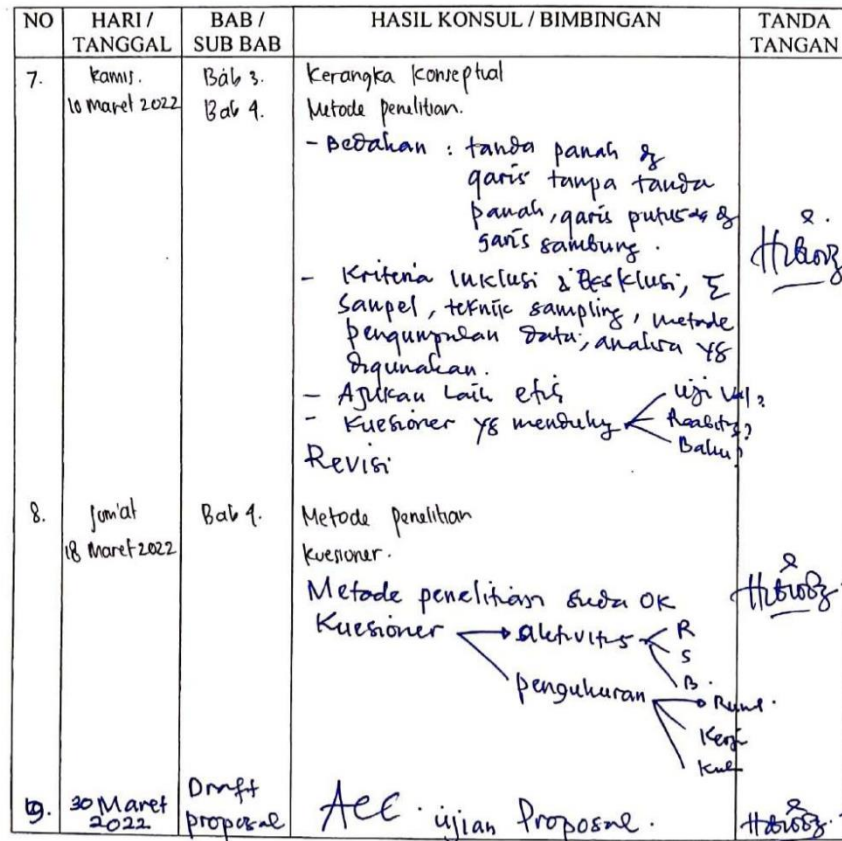 NO HARI / TANGGAL BAB / SUB BAB HASIL KONSUL / BIMBINGAN TANDA TANGAN
7. Kamis. Bab 3. Kerangka Konseptual
10 Maret 2022 Bab 4. Metode Penelitian.
- Bedakan : tanda panah &
garis tanpa tanda
panah, garis putus &
garis sambung.
- Kriteria Inklusi & Eksklusi, Σ
sampel, teknik sampling, metode
pengumpulan data, analisa yg
digunakan.
- Ajukan Laik etik
- Kuesioner yg
Uji Val?
Baku?
Revisi
8. Jum'at Bab 4. Metode Penelitian
18 Maret 2022 Kuesioner.
Metode penelitian suda OK
Kuesioner aktivitas R
S
B.
pengukuran
9. 30 Maret 2022 Draft proposal Acc. ujian Proposal.